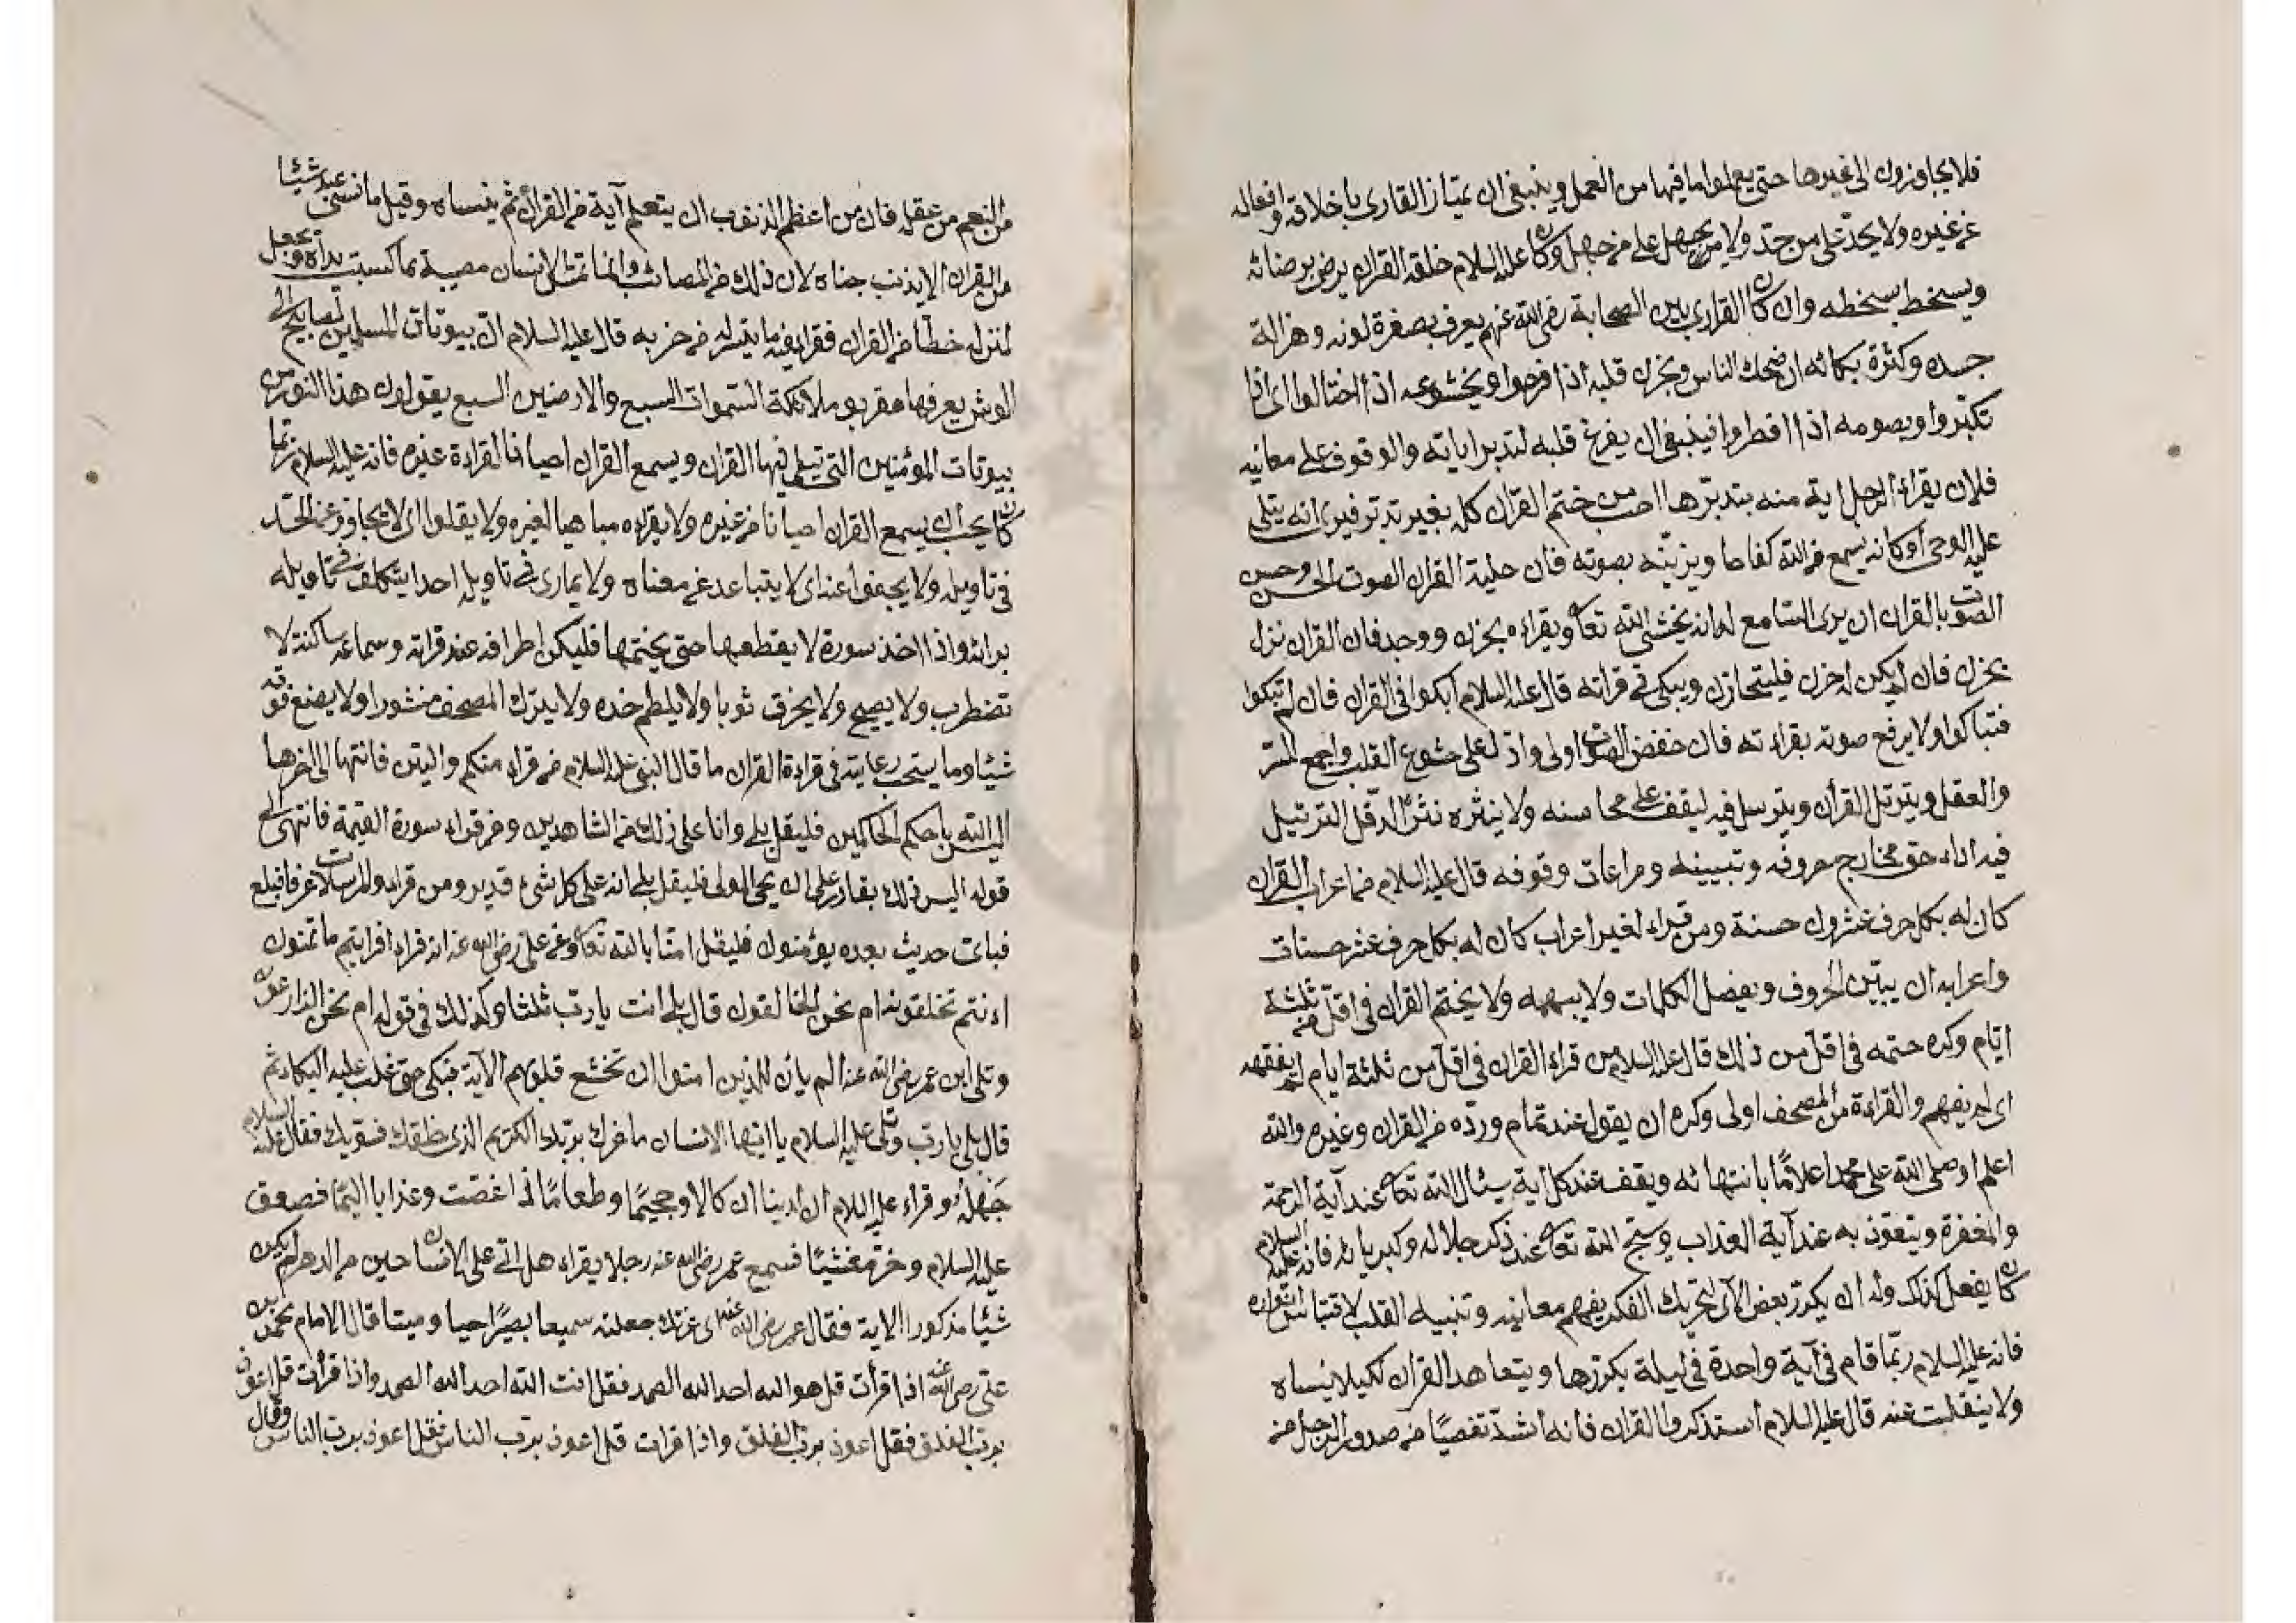 فلا يجاوزون الى غيرها حتى يعملوا ما فيها من العمل وينبغى ان يمتاز القارى باخلاقه وافعاله
عن غيره ولا يحد على من حد ولا من يجهل على من جهل وكان عليه السلام خلقه القران يرضى برضائه
ويسخط بسخطه وان كان القارى بين الصحابة رضى الله عنهم يعرف بصفرة لونه وهزالة
جسده وكثرة بكائه ان ضحك الناس وبحزن قلبه اذا فرحوا وبخشوعه اذا اختالوا اى اذا
تكبروا وبصومه اذا افطروا فينبغى ان يفرغ قلبه لتدبر اياته والوقوف على معانيه
فلان يقراء الرجل اية منه بتدبرها احب من ختم القران كله بغير تدبر فيرى انه يتلى
عليه الوحى او كانه يسمع من الله كفاحا ويزينه بصوته فان حلية القران الصوت الحسن وحسن
الصوت بالقران ان يرى السامع له انه يخشى الله تعالى ويقراءه بحزن ووجد فان القران نزل
بحزن فان لم يكن له حزن فليتحازن ويبكى فى قراته قال عليه السلام ابكوا فى القران فان لم تبكوا
فتباكوا ولا يرفع صوته بقراءته فان خفض الصوت اولى وادل على خشوع القلب واجمع للسر
والعقل ويترتل القرأن ويترسل فيه ليقف على محاسنه ولا ينثره نثر الدقل الترتيل
فيه اداء حق مخارج حروفه وتبيينه ومراعات وقوفه قال عليه السلام من اعراب القران
كان له بكل حرف عشرون حسنة ومن قراء لغير اعراب كان له بكل حرف عشر حسنات
واعرابه ان يبين الحروف ويفصل الكلمات ولا يبهمه ولا يختم القران فى اقل من ثلثة
ايام وكره ختمه فى اقل من ذلك قال عليه السلام من قراء القران فى اقل من ثلثة ايام لم يفقهه
اى لم يفهم والقراءة من المصحف اولى وكره ان يقول عند تمام ورده من القران وغيره والله
اعلم او صلى الله على محمد اعلاما بانتهائه ويقف عند كل أية يسئال الله تعالى عند آية الرحمة
والمغفرة ويتعوذ به عند آية العذاب ويسبح الله تعالى عند ذكر جلاله وكبريائه فانه عليه السلام
كان يفعل كذلك وله ان يكرر بعض الآى لتحريك الفكر بفهم معانيه وتنبيه القلب لاقتباس انواره
فانه عليه السلام ربما قام فى آية واحدة فى ليلة يكررها ويتعاهد القرأن لكيلا ينساه
ولا ينقلب عنه قال عليه السلام استذكروا القران فانه اشد تفصيا من صدور الرجل من
من النعم من عقله فان من اعظم الذنوب ان يتعلم آية من القرأن ثم ينساه وقيل ما نسى عبد شيئا
من القران الا بذنب جناه لان ذلك من المصائب وانما تمس الانسان مصيبة بما كسبت يداه ويجعل
لمنزله خطأ من القران فقرا فيه ما يتيسر له من حزبه قال عليه السلام ان بيوتات المسلمين لمصابيح الى
العرش يعرفها مقربو ملائكة السموات السبع والارضين السبع يقولون هذا النور من
بيوتات المؤمنين التى يتلى فيها القران ويسمع القران احيانا القراءة غيره فانه عليه السلام ربما
كان يحب ان يسمع القران احيانا من غيره ولا يقراءه مباهيا لغيره ولا يغلوا اى لا يتجاوز عن الحد
فى تاويله ولا يجفوا عنه اى لا يتباعد عن معناه ولا يمارى فى تاويله احدا يتكلف فى تاويله
برائه واذا اخذ سورة لا يقطعها حتى يختمها فليكن اطرافه عند قراته وسماعه ساكنة لا
تضطرب ولا يصيح ولا يخرق ثوبا ولا يلطم خده ولا يترك المصحف منشورا ولا يضع فوقه
شيئا وما يستحب رعايته فى قراءة القران ما قال النبى عليه السلام من قراء منكم والتين فانتها الى اخرها
اليس الله باحكم الحاكمين فليقل بلى وانا على ذلك من الشاهدين ومن قراء سورة القيمة فانتهى الى
قوله اليس ذلك بقادر على ان يحى الموتى فليقل بلى انه على كل شىء قدير ومن قراء والمرسلات عرفا فبلغ
فباى حديث بعده يؤمنون فليقل امنا بالله تعالى وعن على رضى الله عنه انه قراء افرايتم ما تمنون
اءنتم تخلقونه ام نحن الخالقون قال بلى انت يا رب ثلثا وكذلك فى قوله ام نحن الزارعون
وتلى ابن عمر رضى الله عنه الم يأن للذين امنوا ان تخشع قلوبهم الآية فبكى حتى غلب عليه البكاء ثم
قال بلى يا رب وتلى عليه السلام يا ايها الانسان ما غرك بربك الكريم الذى خلقك فسويك فقال عليه السلام
جهله وقراء عليه السلام ان لدينا انكالا وجحيما وطعاما ذا غصت وعذابا اليما فصعق
عليه السلام وخر مغشيا فسمع عمر رضى الله عنه رجلا يقراء هل اتى على الانسان حين من الدهر لم يكن
شيئا مذكورا الاية فقال عمر رضى الله عنه اى عزتك جعلته سميعا بصيرا حيا وميتا قال الامام محمد بن
على رضى الله عنه اذا قرأت قل هو الله احد الله الصمد فقل انت الله احد الله الصمد واذا قرأت قل اعوذ
برب الفلق فقل اعوذ برب الفلق واذا قرات قل اعوذ برب الناس فقل اعوذ برب الناس وقال